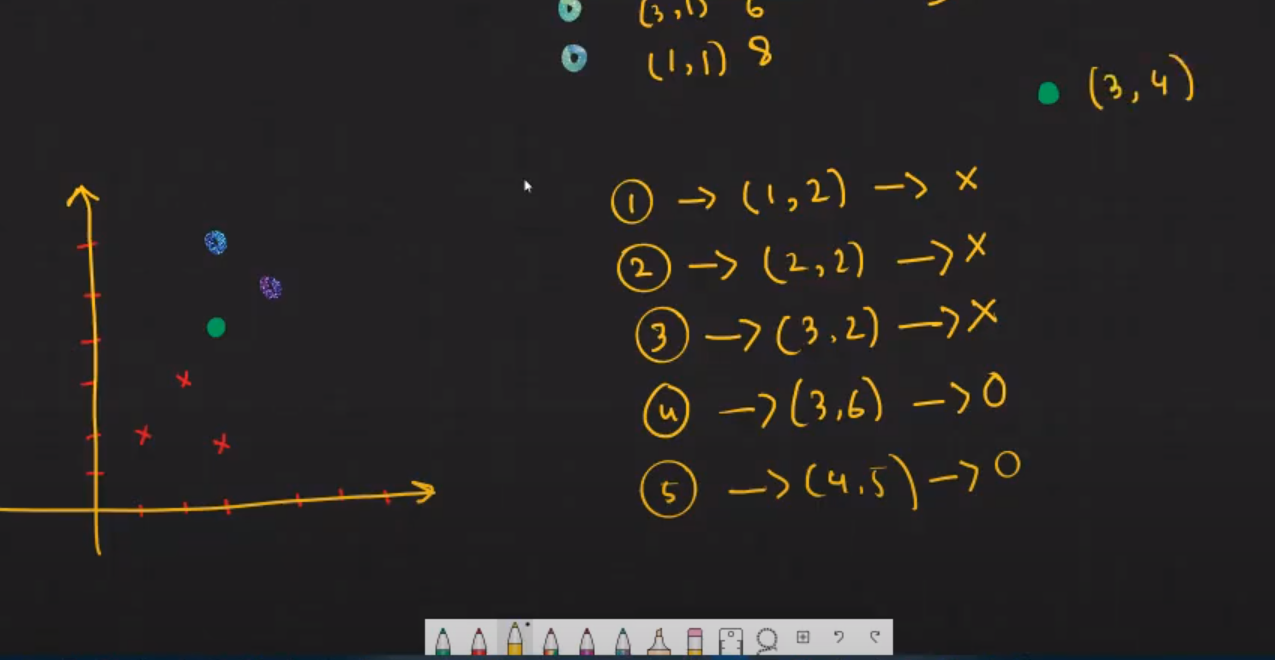 (3,1) 6
(1,1) 8
(3, 4)
1 → (1,2) → x
2 → (2,2) → x
3 → (3,2) → x
4 → (3,6) → 0
5 → (4,5) → 0